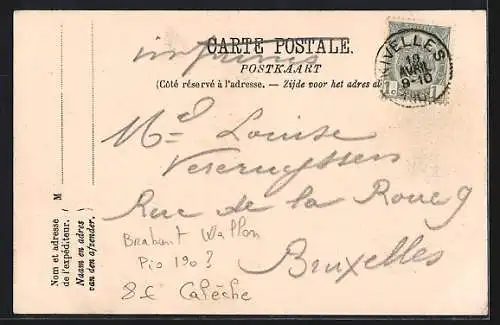 CARTE POSTALE.
imprimés
POSTKAART
(Côté réservé à l'adresse. — Zijde voor het adres
NIVELLES
19
AVRIL
9-10
1
1
M
Nom et adresse
de l'expéditeur.
Naam en adres
van den afzender.
Louise
Rue de la
Bruxelles
Brabant Wallon
Pio 190?
8 € Calèche